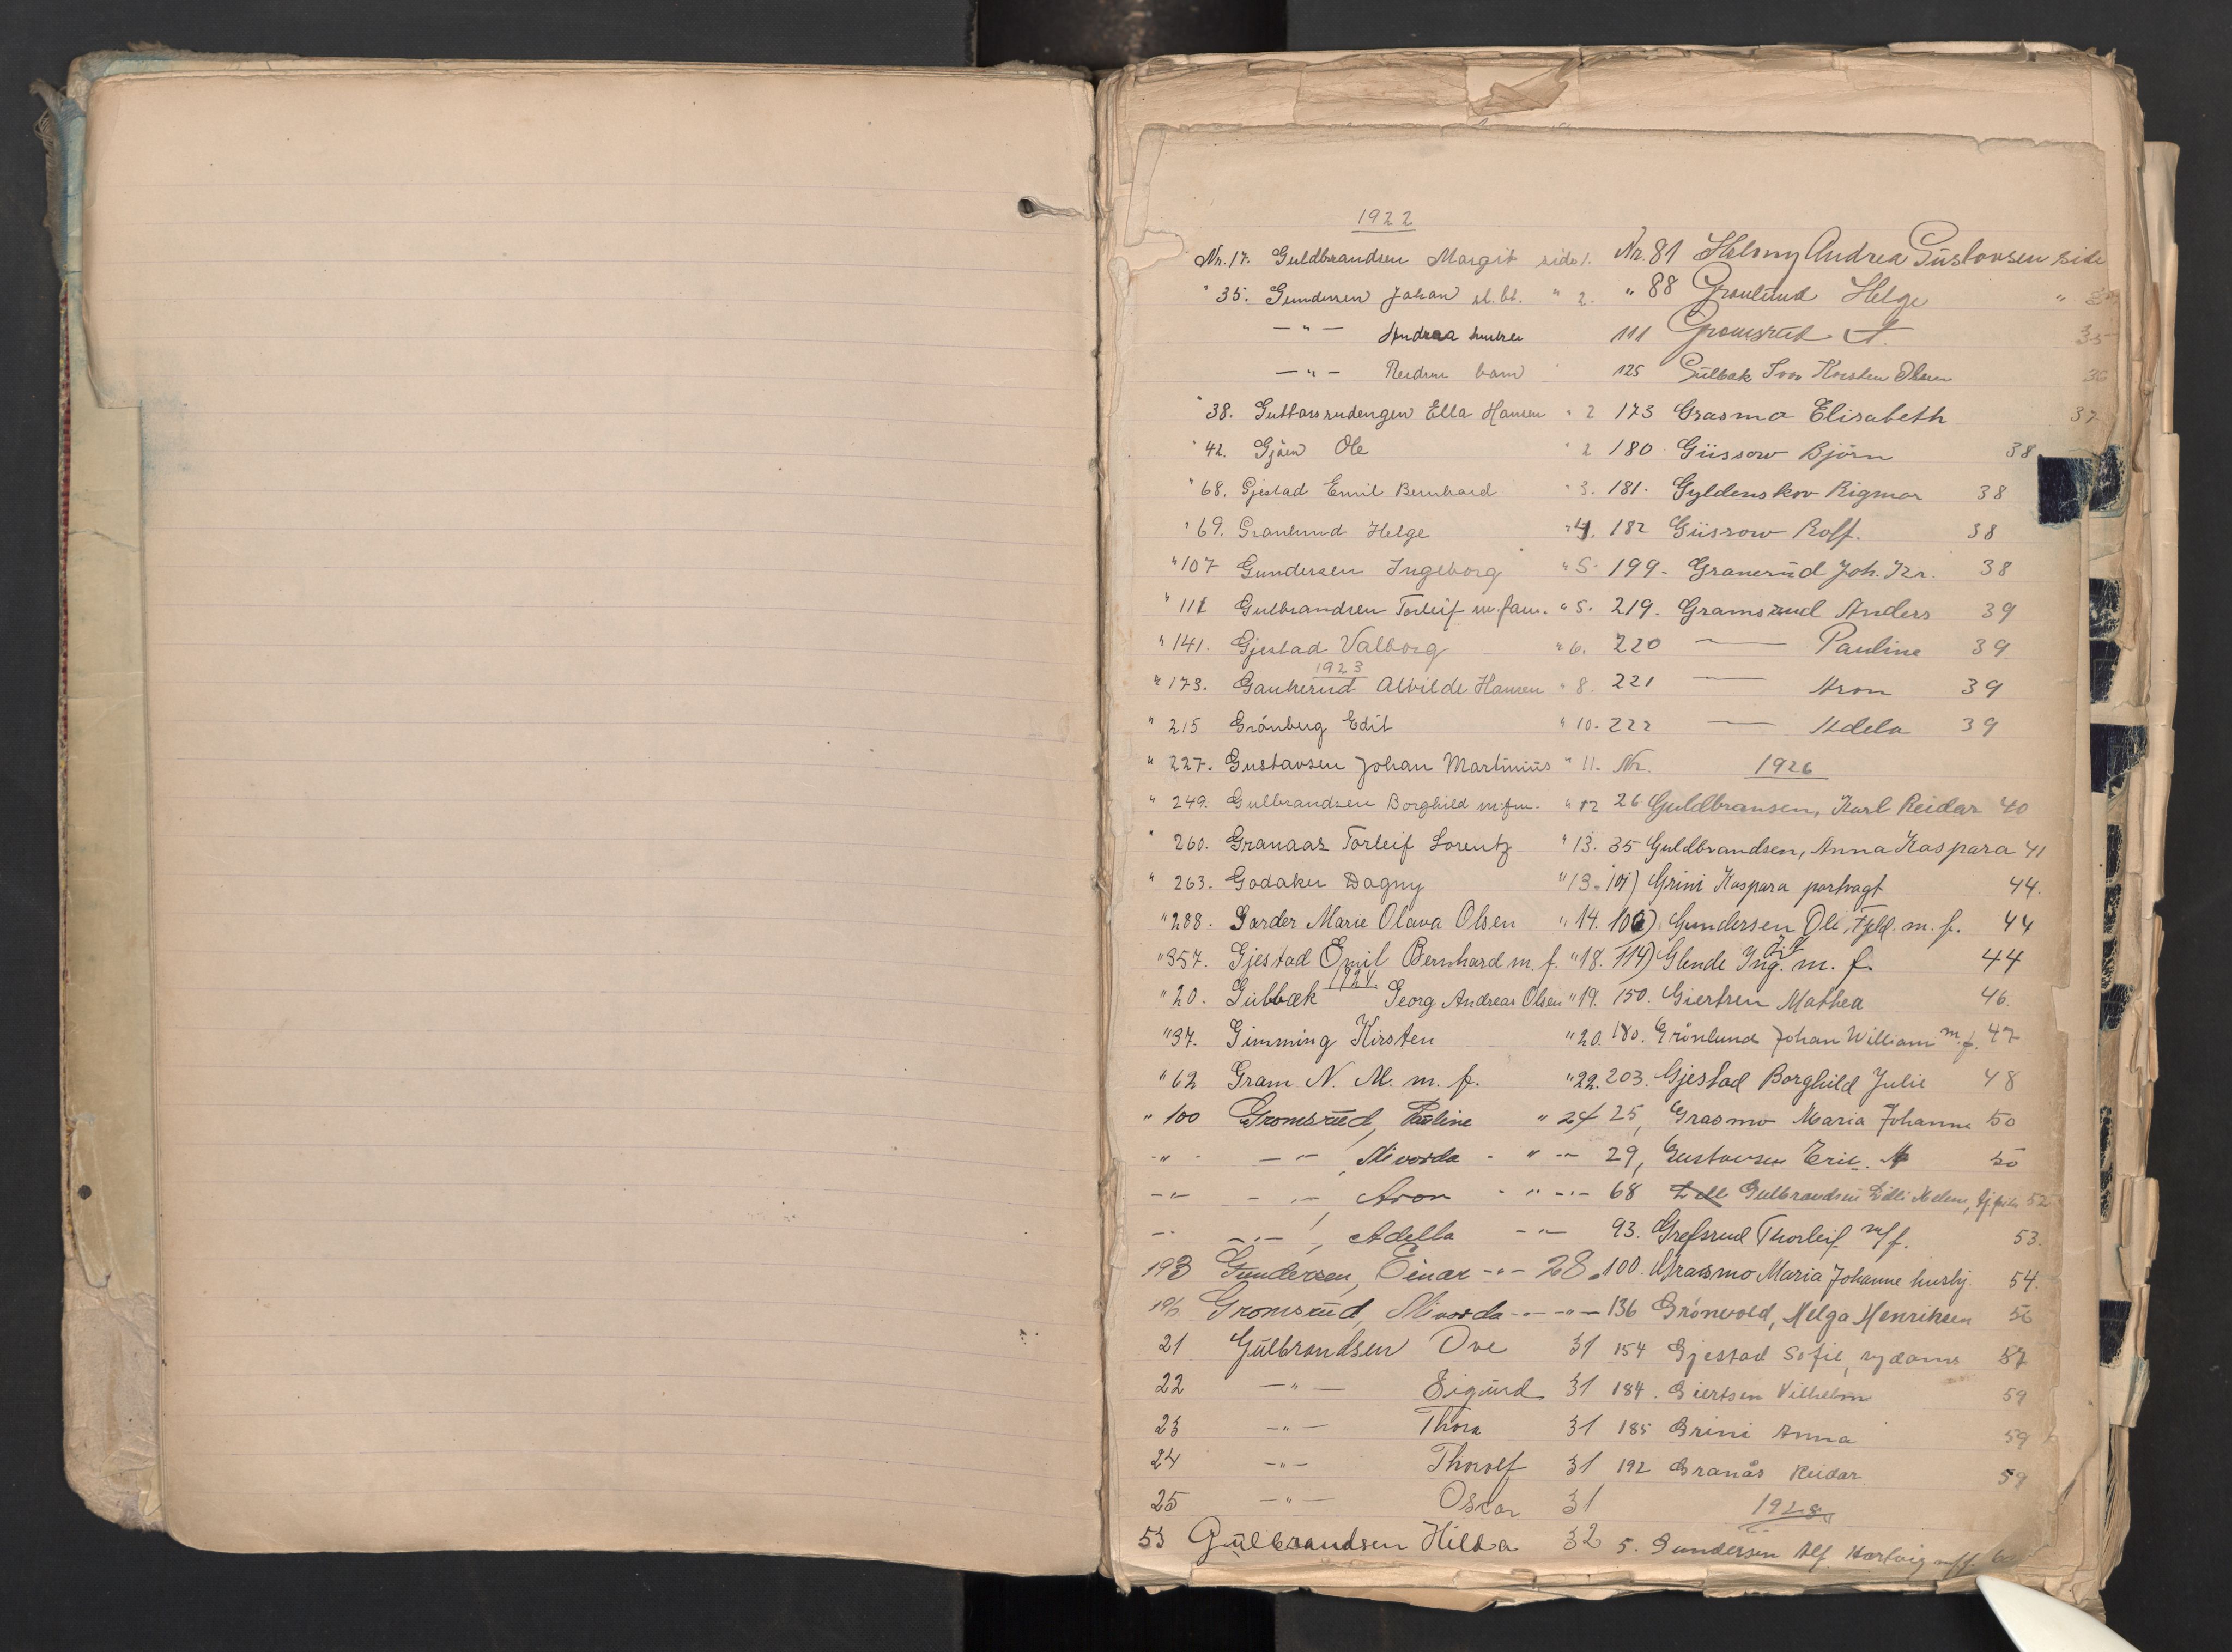 1922
Nr. 17. Guldbrandsen Margit side 1.
" 35. Gundersen Johan " 2.
— " — Andrea hustru
— " — Reidun barn
" 38. Guttorsrudengen Ella Hansen " 2
" 42. Gjöen Ole " 2
" 68. Gjestad Emil Bernhard " 3.
" 69. Granlund Helge " 4.
" 107 Gundersen Ingeborg " 5.
" 111 Gulbrandsen Torleif m. fam. " 5.
" 141. Gjestad Valborg " 6.
1923
" 173. Gaukerud Alvilde Hansen " 8.
" 215 Grönberg Edit " 10.
" 227. Gustavsen Johan Martinius " 11.
" 249. Gulbrandsen Borghild m. fm. " 12
" 260. Granaas Torleif Lorentz " 13.
" 263. Godaker Dagny " 13.
" 288. Garder Marie Olava Olsen " 14.
" 357. Gjestad Emil Bernhard m. f. " 18.
1924.
" 20. Gubbæk Georg Andreas Olsen " 19.
" 37. Gimming Kirsten " 20.
" 62 Gram N. M. m. f. " 22.
" 100 Gromsrud, Paline " 24
— " — — " — , Alvorda - " — " —
— " — — " — , Aron - " — " —
— " — — " — , Adella — " —
193 Gundersen, Einar — " — 28.
Gromsrud, Alvorda — " —
21 Gulbrandsen Ove 31
22 — " — Sigurd 31
23 — " — Thora 31
24 — " — Thorolf 31
25 — " — Oskar 31
53 Gulbrandsen Hilda 32
Nr. 81 Helmy Andrea Gustavsen side
" 88 Granlund Helge "
111 Gromsrud A. 35
125 Gulbæk Ivar Torsten Olsen 36
173 Grasmo Elisabeth 37
180 Güssow Björn 38
181. Gyldenskov Rigmor 38
182 Güssow Rolf. 38
199. Granerud Joh. Kr. 38
219. Gramsrud Anders 39
220 — Pauline 39
221 — Aron 39
222 — Adela 39
Nr. 1926
26 Guldbransen, Karl Reidar 40
35 Guldbrandsen, Anna Kaspara 41
101) Grini Kaspara portvagt 44.
106) Gundersen Ole, Fyld. m. f. 44
114) Glende Ing. m. f. 44
150. Giertsen Mathea 46.
180. Grönlund Johan William m. f. 47
203. Gjestad Borghild Julie 48
25, Grasmo Maria Johanne 50
29, Gustavsen Eric. A 50
68 Gulbrandsen Edli Helene, 52
93. Grefsrud Thorleif m/f. 53.
100. Grasmo Maria Johanne hushj. 54.
136 Grönvold, Helga Henriksen 56
154 Gjestad Sofie, sydame 57
184. Giertsen Vilhelm 59
185 Grini Anna 59
192 Granås Reidar 59
1928
5. Gundersen Alf Hartvig m/f. 60